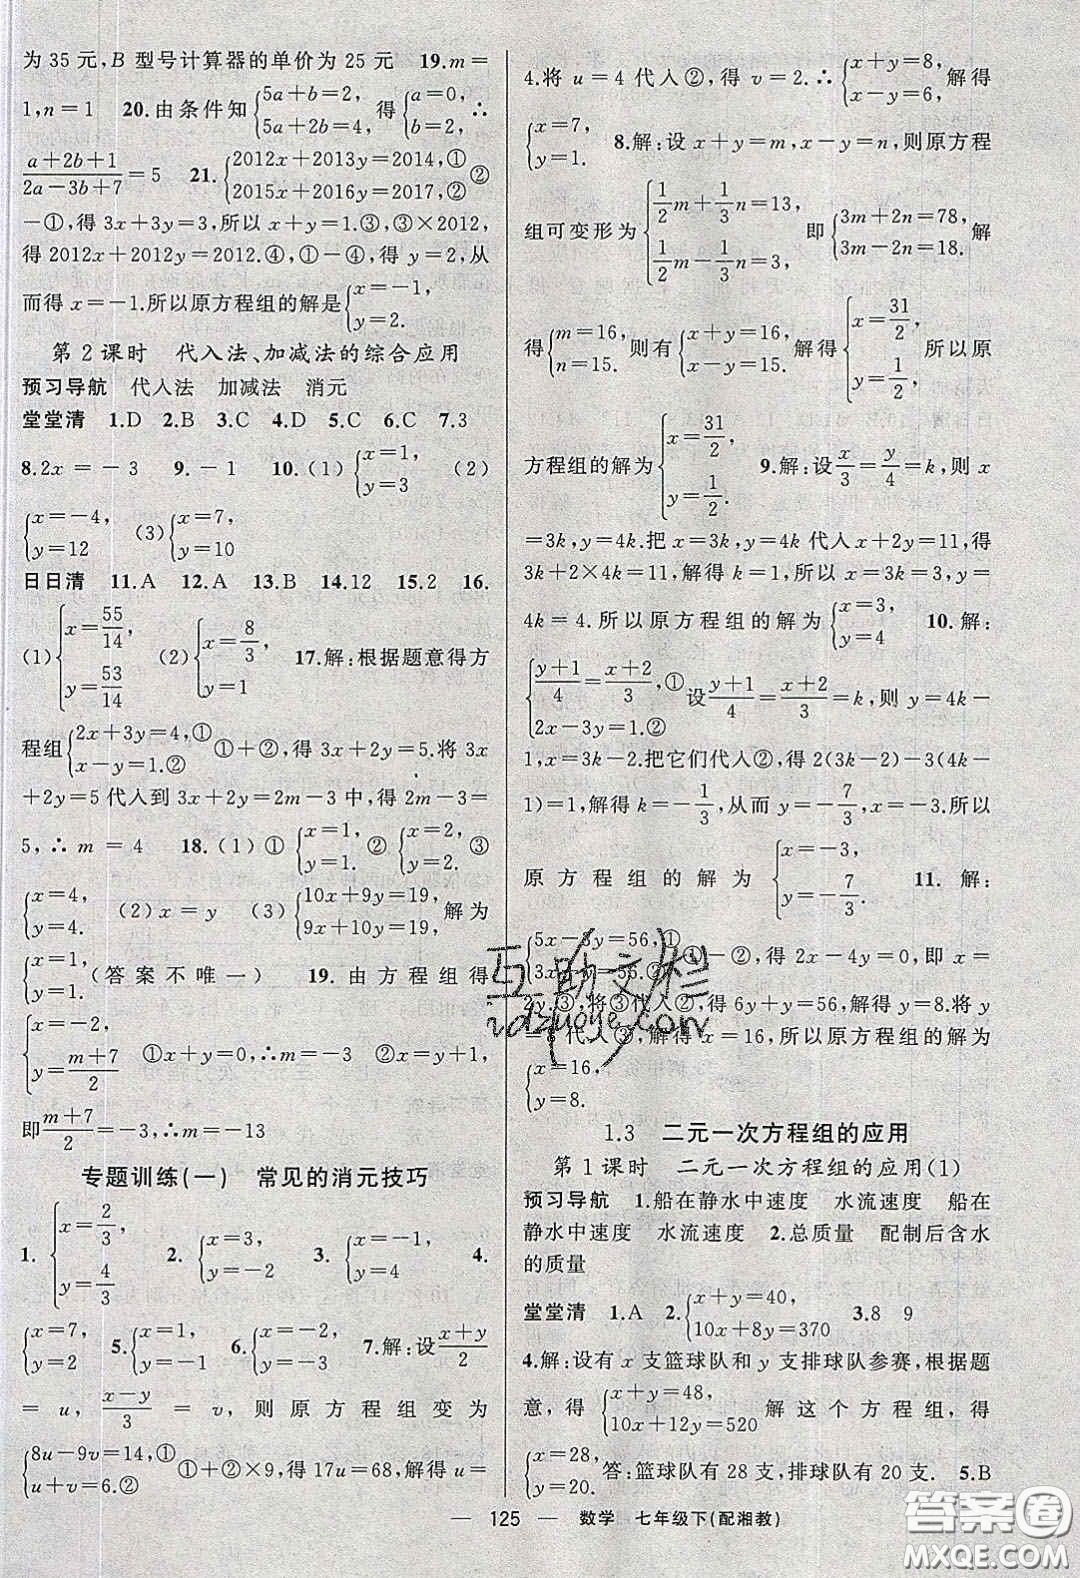 为 35 元,B 型号计算器的单价为 25 元　19.m=
1,n=1　20.由条件知{5a+b=2, 5a+2b=4, 得{a=0, b=2, ∴
(a+2b+1)/(2a-3b+7)=5　21.{2012x+2013y=2014,① 2015x+2016y=2017,② ②
-①,得 3x+3y=3,所以 x+y=1.③,③×2012,
得 2012x+2012y=2012.④,①-④,得 y=2,从
而得 x=-1.所以原方程组的解是{x=-1, y=2.
第 2 课时　代入法、加减法的综合应用
预习导航　代入法　加减法　消元
堂堂清　1.D　2.B　3.C　4.D　5.C　6.C　7.3
8.2x=-3　9.-1　10.(1){x=1, y=3　(2)
{x=-4, y=12　(3){x=7, y=10
日日清　11.A　12.A　13.B　14.12　15.2　16.
(1){x=55/14, y=53/14　(2){x=8/3, y=1　17.解:根据题意得方
程组{2x+3y=4,① x-y=1.② ①+②,得 3x+2y=5.将 3x
+2y=5 代入到 3x+2y=2m-3 中,得 2m-3=
5,∴m=4　18.(1)①{x=1, y=1. ②{x=2, y=2. ③
{x=4, y=4.　(2)x=y　(3){10x+9y=19, 9x+10y=19, 解为
{x=1, y=1.(答案不唯一)　19.由方程组得
{x=-2, y=(m+7)/2　①x+y=0,∴m=-3　②x=y+1,
即(m+7)/2=-3,∴m=-13
专题训练(一)　常见的消元技巧
1.{x=2/3, y=4/3　2.{x=3, y=-2　3.{x=-1, y=4　4.
{x=7, y=2　5.{x=1, y=-1　6.{x=-2, y=-3　7.解:设(x+y)/2
=u,(x-y)/3=v,则原方程组变为
{8u-9v=14,① 2u+v=6.② ①+②×9,得 17u=68,解得 u=
4.将 u=4 代入②,得 v=2.∴{x+y=8, x-y=6, 解得
{x=7, y=1.　8.解:设 x+y=m,x-y=n,则原方程
组可变形为{1/2m+1/3n=13, 1/2m-1/3n=3, 即{3m+2n=78, 3m-2n=18, 解
得{m=16, n=15. 则有{x+y=16, x-y=15. 解得{x=31/2, y=1/2. 所以原
方程组的解为{x=31/2, y=1/2.　9.解:设x/3=y/4=k,则 x
=3k,y=4k.把 x=3k,y=4k 代入 x+2y=11,得
3k+2×4k=11,解得 k=1,所以 x=3k=3,y=
4k=4.所以原方程组的解为{x=3, y=4　10.解:
{(y+1)/4=(x+2)/3,① 2x-3y=1.② 设(y+1)/4=(x+2)/3=k,则 y=4k-
1,x=3k-2.把它们代入②,得 2(3k-2)-3(4k-
1)=1,解得 k=-1/3,从而 y=-7/3,x=-3.所以
原方程组的解为{x=-3, y=-7/3.　11.解:
{5x-3y=56,① 3x ②.①-②,得 2x-4y=0,即 x=
2y.③,将③代入②,得 6y+y=56,解得 y=8.将 y
=8 代入③,解得 x=16,所以原方程组的解为
{x=16, y=8.
1.3　二元一次方程组的应用
第 1 课时　二元一次方程组的应用(1)
预习导航　1.船在静水中速度　水流速度　船在
静水中速度　水流速度　2.总质量　配制后含水
的质量
堂堂清　1.A　2.{x+y=40, 10x+8y=370　3.8　9
4.解:设有 x 支篮球队和 y 支排球队参赛,根据题
意,得{x+y=48, 10x+12y=520 解这个方程组,得
{x=28, y=20.　答:篮球队有 28 支,排球队有 20 支.　5.B
— 125 —　数学　七年级下(配湘教)
互助文栏
答案圈
MXQE.COM